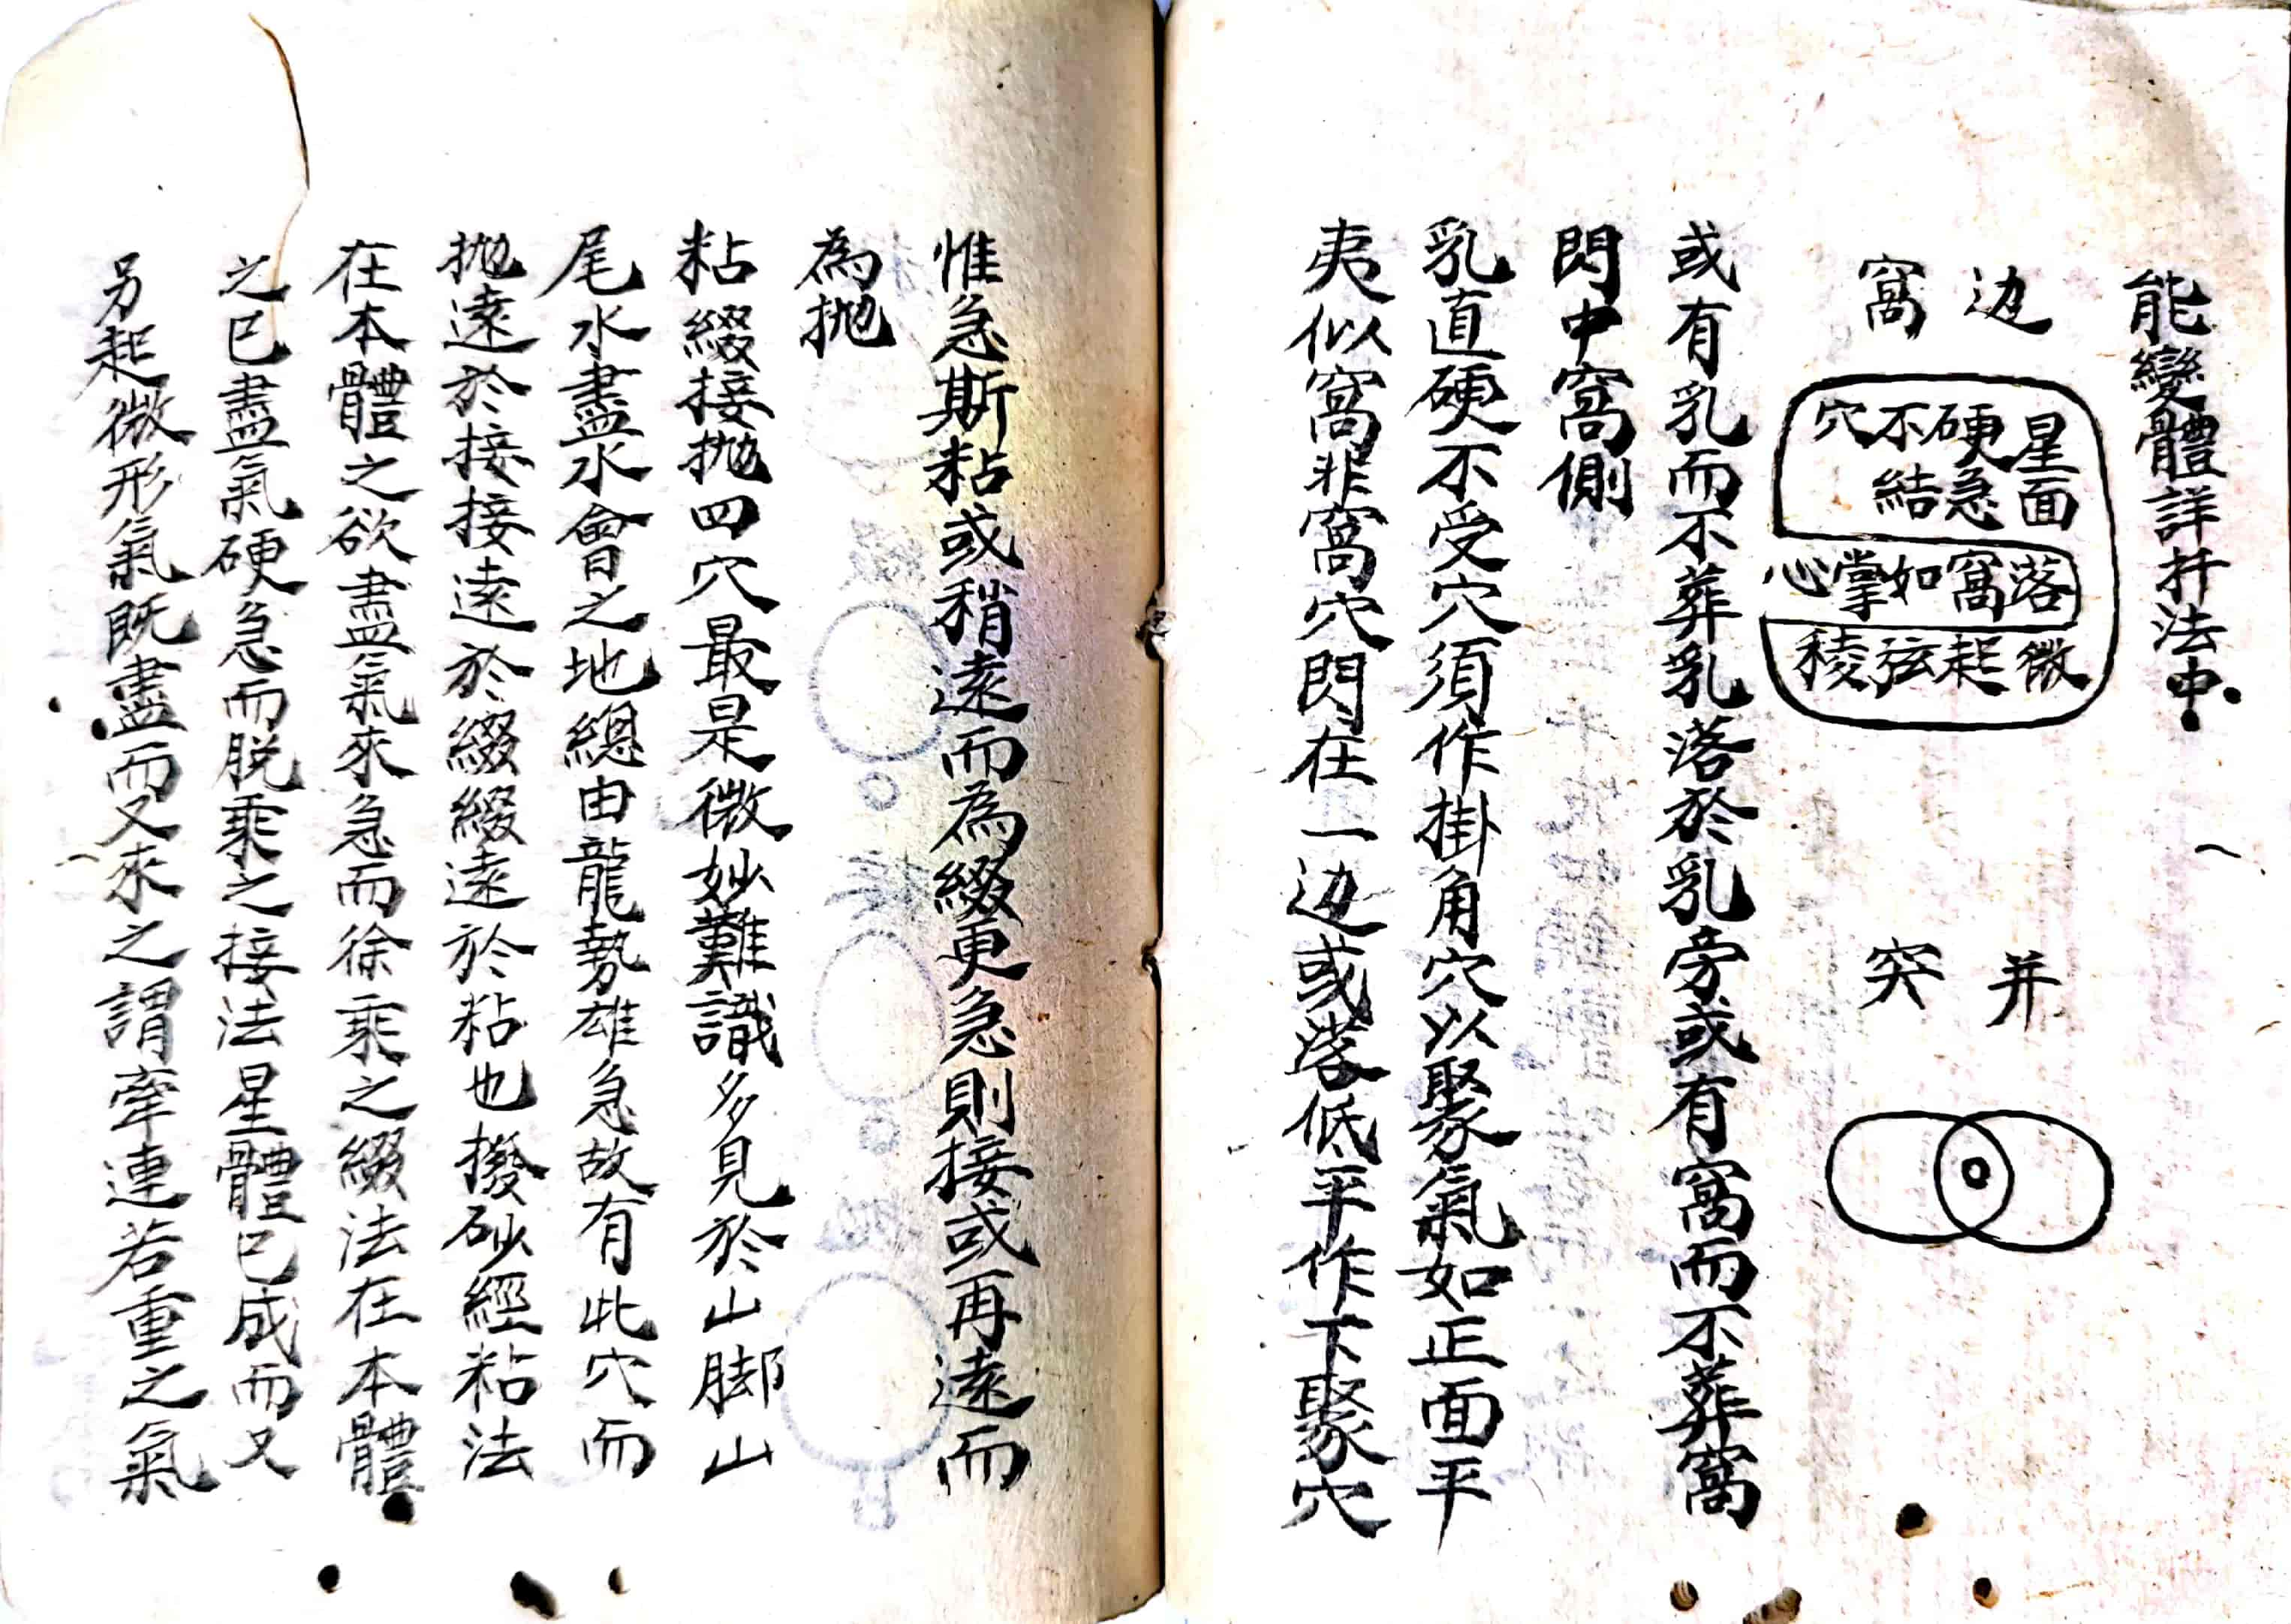 能變體詳扦法中
边窩
星面
硬急
不結
穴
落窩如掌心
微起弦稜
并突
或有乳而不葬乳落於乳旁或有窩而不葬窩
閃中窩側
乳直硬不受穴須作掛角穴以聚氣如正面平
夷似窩非窩穴閃在一边或落低平作下聚穴
惟急斯粘或稍遠而為綴更急則接或再遠而
為抛
粘綴接抛四穴最是微妙難識多見於山脚山
尾水盡水會之地總由龍勢雄急故有此穴而
抛遠於接接遠於綴綴遠於粘也撥砂經粘法
在本體之欲盡氣來急而徐乘之綴法在本體
之已盡氣硬急而脱乘之接法星體已成而又
另起微形氣既盡而又來之謂牽連若重之氣